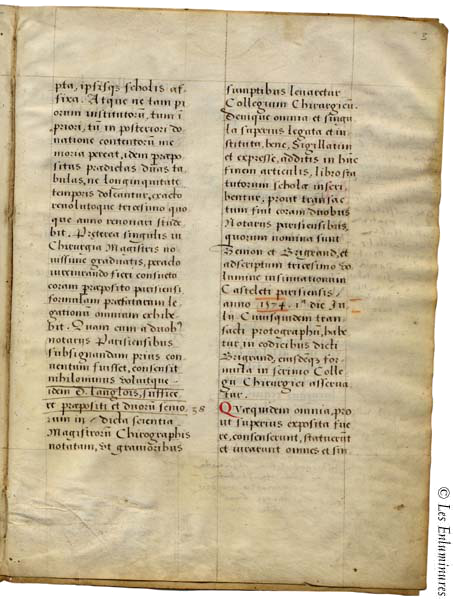 3
pta, ipsisq̃ scholis af-
fixa. Atque ne tam pi
orum institutorũ, tum ĩ
priori, tũ in posteriori do
natione contentorũ me
moria pereat, idem præpo
situs prædictas duas ta
bulas, ne longinquitate
temporis doleantur, exacto
revolutoque tricesimo quo
que anno renovari stude
bit. Præterea singulis in
Chirurgia Magistris no
vissime graduatis, peracto
iureiurando fieri consueto
coram præposito parisiensi
formulam præfatarum le
gationũ omnium exhibe
bit. Quam cum a duobꝰ
notariis Parisiensibus
subsignandam prius con
ventum fuisset, consensit
nihilominus voluitque
idem D. Langlois, suffice
re præpositi et duorũ senio
rum in dicta scientia
Magistrorũ Chirographis
notatam, ut gravioribus
sumptibus levaretur
Collegium Chirurgicũ.
Denique omnia et singu
la superius legata et in
stituta, bene, sigillatim
et expresse, additis in hũc
finem articulis, libro sta
tutorum scholæ inscri
bentur, prout transac
tum fuit coram duobus
Notariis parisiensibus,
quorum nomina sunt
et Brigrand, et
adscriptum tricesimo vo
lumine insinuationum
Casteleti parisiensis,
anno 1574. 1ᵃ die Iu
lij Cuiusquidem tran
sacti protographũ, habe
tur, in codicibus dicti
Brigrand, eiusdemq̃ for
mula in scrinio Colle
gii Chirurgici asserva
tur.
38
Quæquidem omnia, pro
ut superius exposita fue
re, consenserunt, statuerũt
et iurarunt omnes et sin
© Les Enluminures